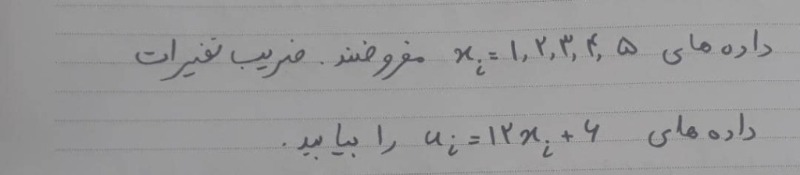 داده های x_i = ۱, ۲, ۳, ۴, ۵ مفروضند. ضریب تغیرات
داده های u_i = ۱۲x_i + ۶ را بیابید.